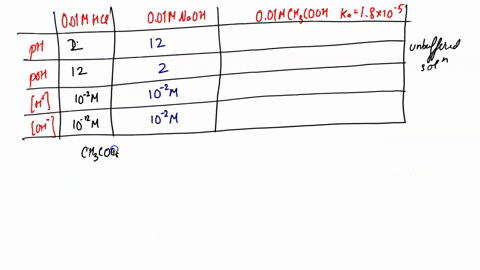 0.01M HCl 0.01M NaOH 0.01M CH₃COOH Ka=1.8×10⁻⁵
pH 2 12
pOH 12 2
[H⁺] 10⁻²M 10⁻²M
[OH⁻] 10⁻¹²M 10⁻²M
unbuffered
solⁿ
CH₃COO